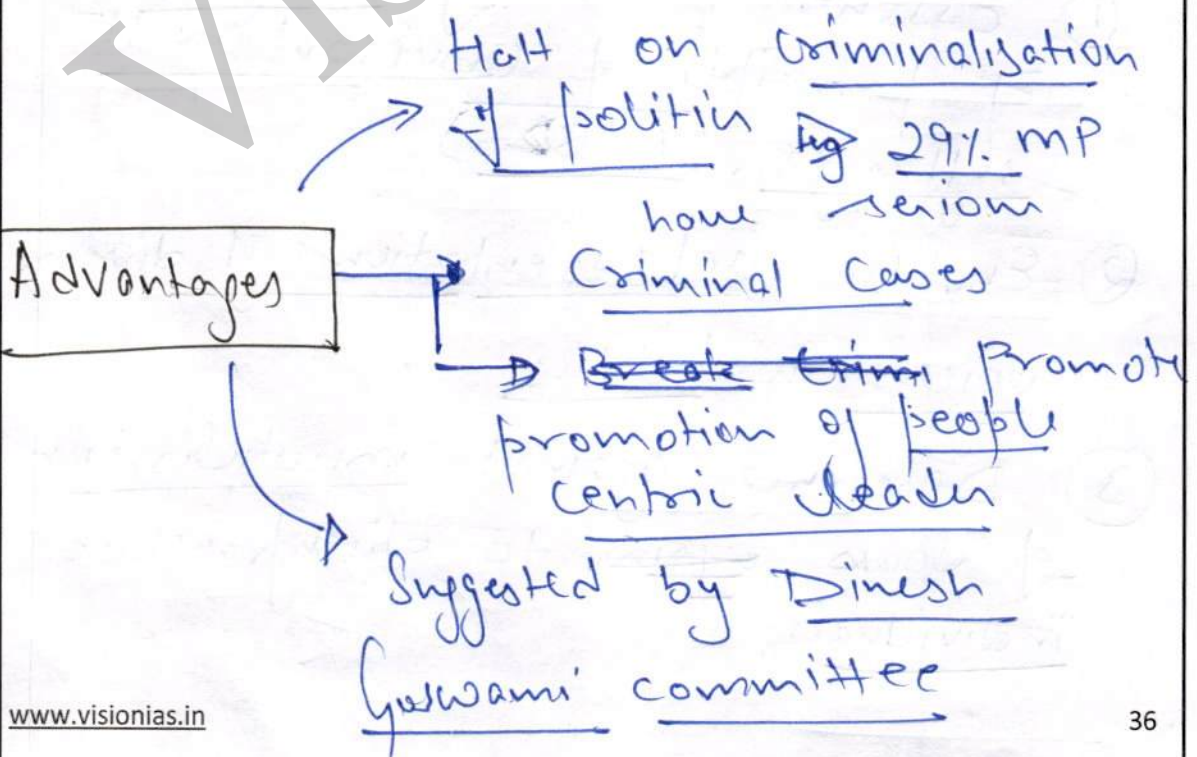 Halt on Criminalisation
of politics eg 29% MP
have serious
Advantages
Criminal Cases
Break Crimi Promote
promotion of people
centric leader
Suggested by Dinesh
Goswami committee
www.visionias.in
36